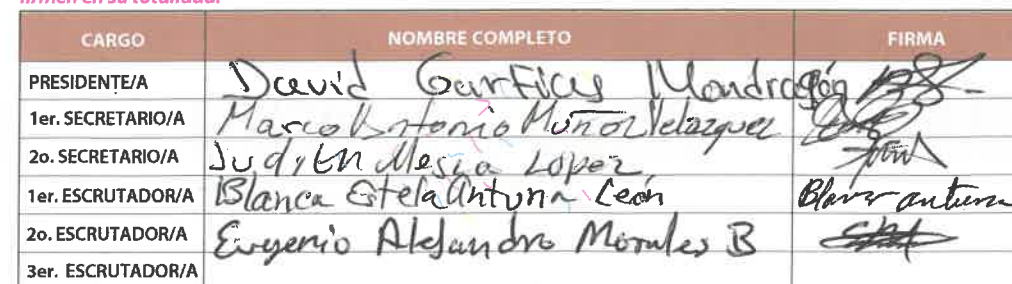 CARGO NOMBRE COMPLETO FIRMA
PRESIDENTE/A David Garficis Mondragón
1er. SECRETARIO/A Marco Antonio Muñoz Velazquez
2o. SECRETARIO/A Judith Mesza Lopez
1er. ESCRUTADOR/A Blanca Estela Antuna León Blanca antuna
2o. ESCRUTADOR/A Eugenio Alejandro Morales B
3er. ESCRUTADOR/A